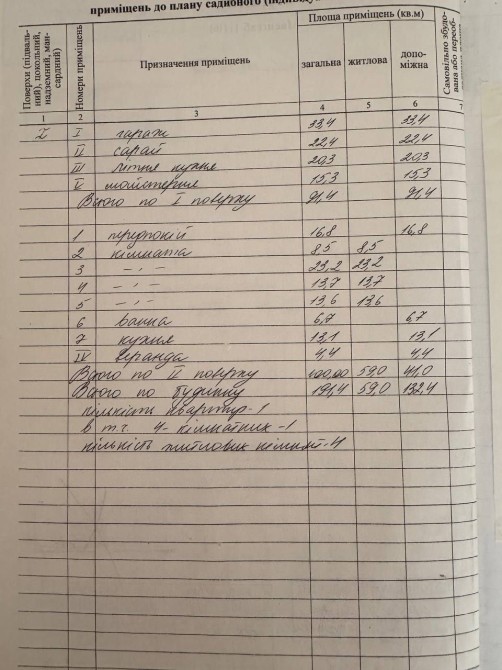 приміщень до плану садибного (індивіду
Поверхи (підваль-
ний), цокольний,
надземний, ман-
сардний)
Номери приміщень
Призначення приміщень
Площа приміщень (кв.м)
загальна житлова допо-
міжна
Самовільно збудо-
вана або переоб-
1 2 3 4 5 6 7
I I гараж 33,4 33,4
II сарай 22,4 22,4
III літня кухня 20,3 20,3
V майстерня 15,3 15,3
Всього по I поверху 91,4 91,4
1 передпокій 16,8 16,8
2 кімната 8,5 8,5
3 -,- 23,2 23,2
4 -,- 13,7 13,7
5 -,- 13,6 13,6
6 ванна 6,7 6,7
7 кухня 13,1 13,1
IV веранда 4,4 4,4
Всього по II поверху 100,00 59,0 41,0
Всього по будинку 191,4 59,0 132,4
кількість квартир-1
в т.ч. 4-кімнатних-1
кількість житлових кімнат-4